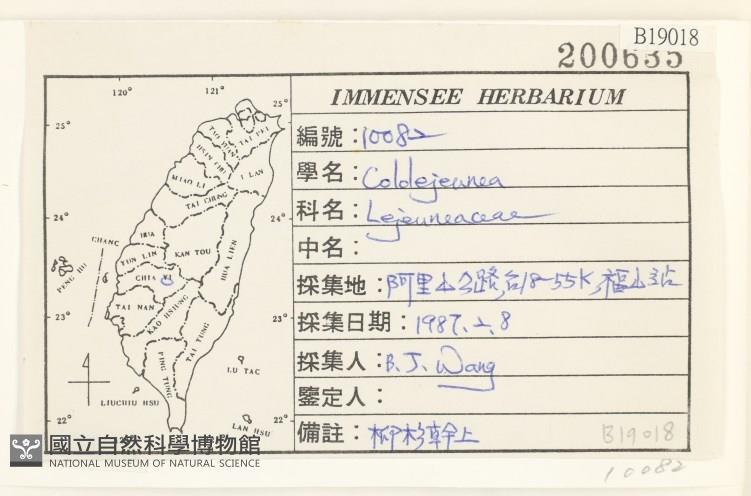 B19018
200635
IMMENSEE HERBARIUM
編號：10082
學名：Cololejeunea
科名：Lejeuneaceae
中名：
採集地：阿里山公路,台18-55K,福山站
採集日期：1987.2.8
採集人：B.J. Wang
鑒定人：
備註：柳杉幹上
B19018
10082
120°
121°
25°
25°
TAI PEI
TAO YUAN
HSIN CHU
I LAN
MIAO LI
TAI CHUNG
24°
24°
CHANG
HUA
NAN TOU
HUA LIEN
YUN LIN
PENG HU
CHIA YI
TAI NAN
KAO HSIUNG
23°
23°
TAI TUNG
PING TUNG
LU TAO
LIUCHIU HSU
LAN HSU
22°
22°
國立自然科學博物館
NATIONAL MUSEUM OF NATURAL SCIENCE